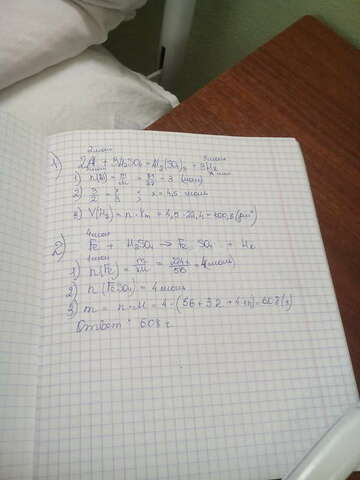 2 моль 3 моль
1) 2Al + 3H₂SO₄ → Al₂(SO₄)₃ + 3H₂
2 моль x моль
1) n(Al) = m/M = 81/27 = 3 (моль)
2) 3/2 = x/3 ; x = 4,5 моль
3) V(H₂) = n · Vm = 4,5 · 22,4 = 100,8 (дм³)
4 моль
2) Fe + H₂SO₄ → FeSO₄ + H₂
1 моль
1) n(Fe) = m/M = 224/56 = 4 моль
2) n(FeSO₄) = 4 моль
3) m = n · M = 4 · (56 + 32 + 4·16) = 608 (г)
Ответ: 608 г.